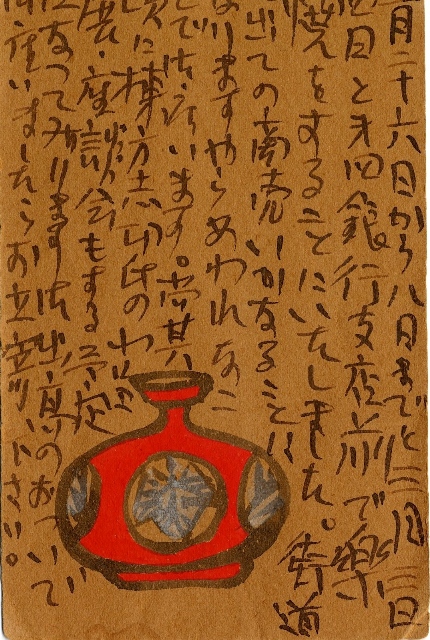 月二十六日から八日までと三月三日
四日と才四銀行支店前で楽
焼をすることにいたしました。街道
出ての商売いかなることに
なりますやらあわれなこ
とで御座います。尚其
頃に棟方志功氏の
展・座談会もする予定
になつてゐります御出京のおついで
御座いましたらお立寄り下さい。